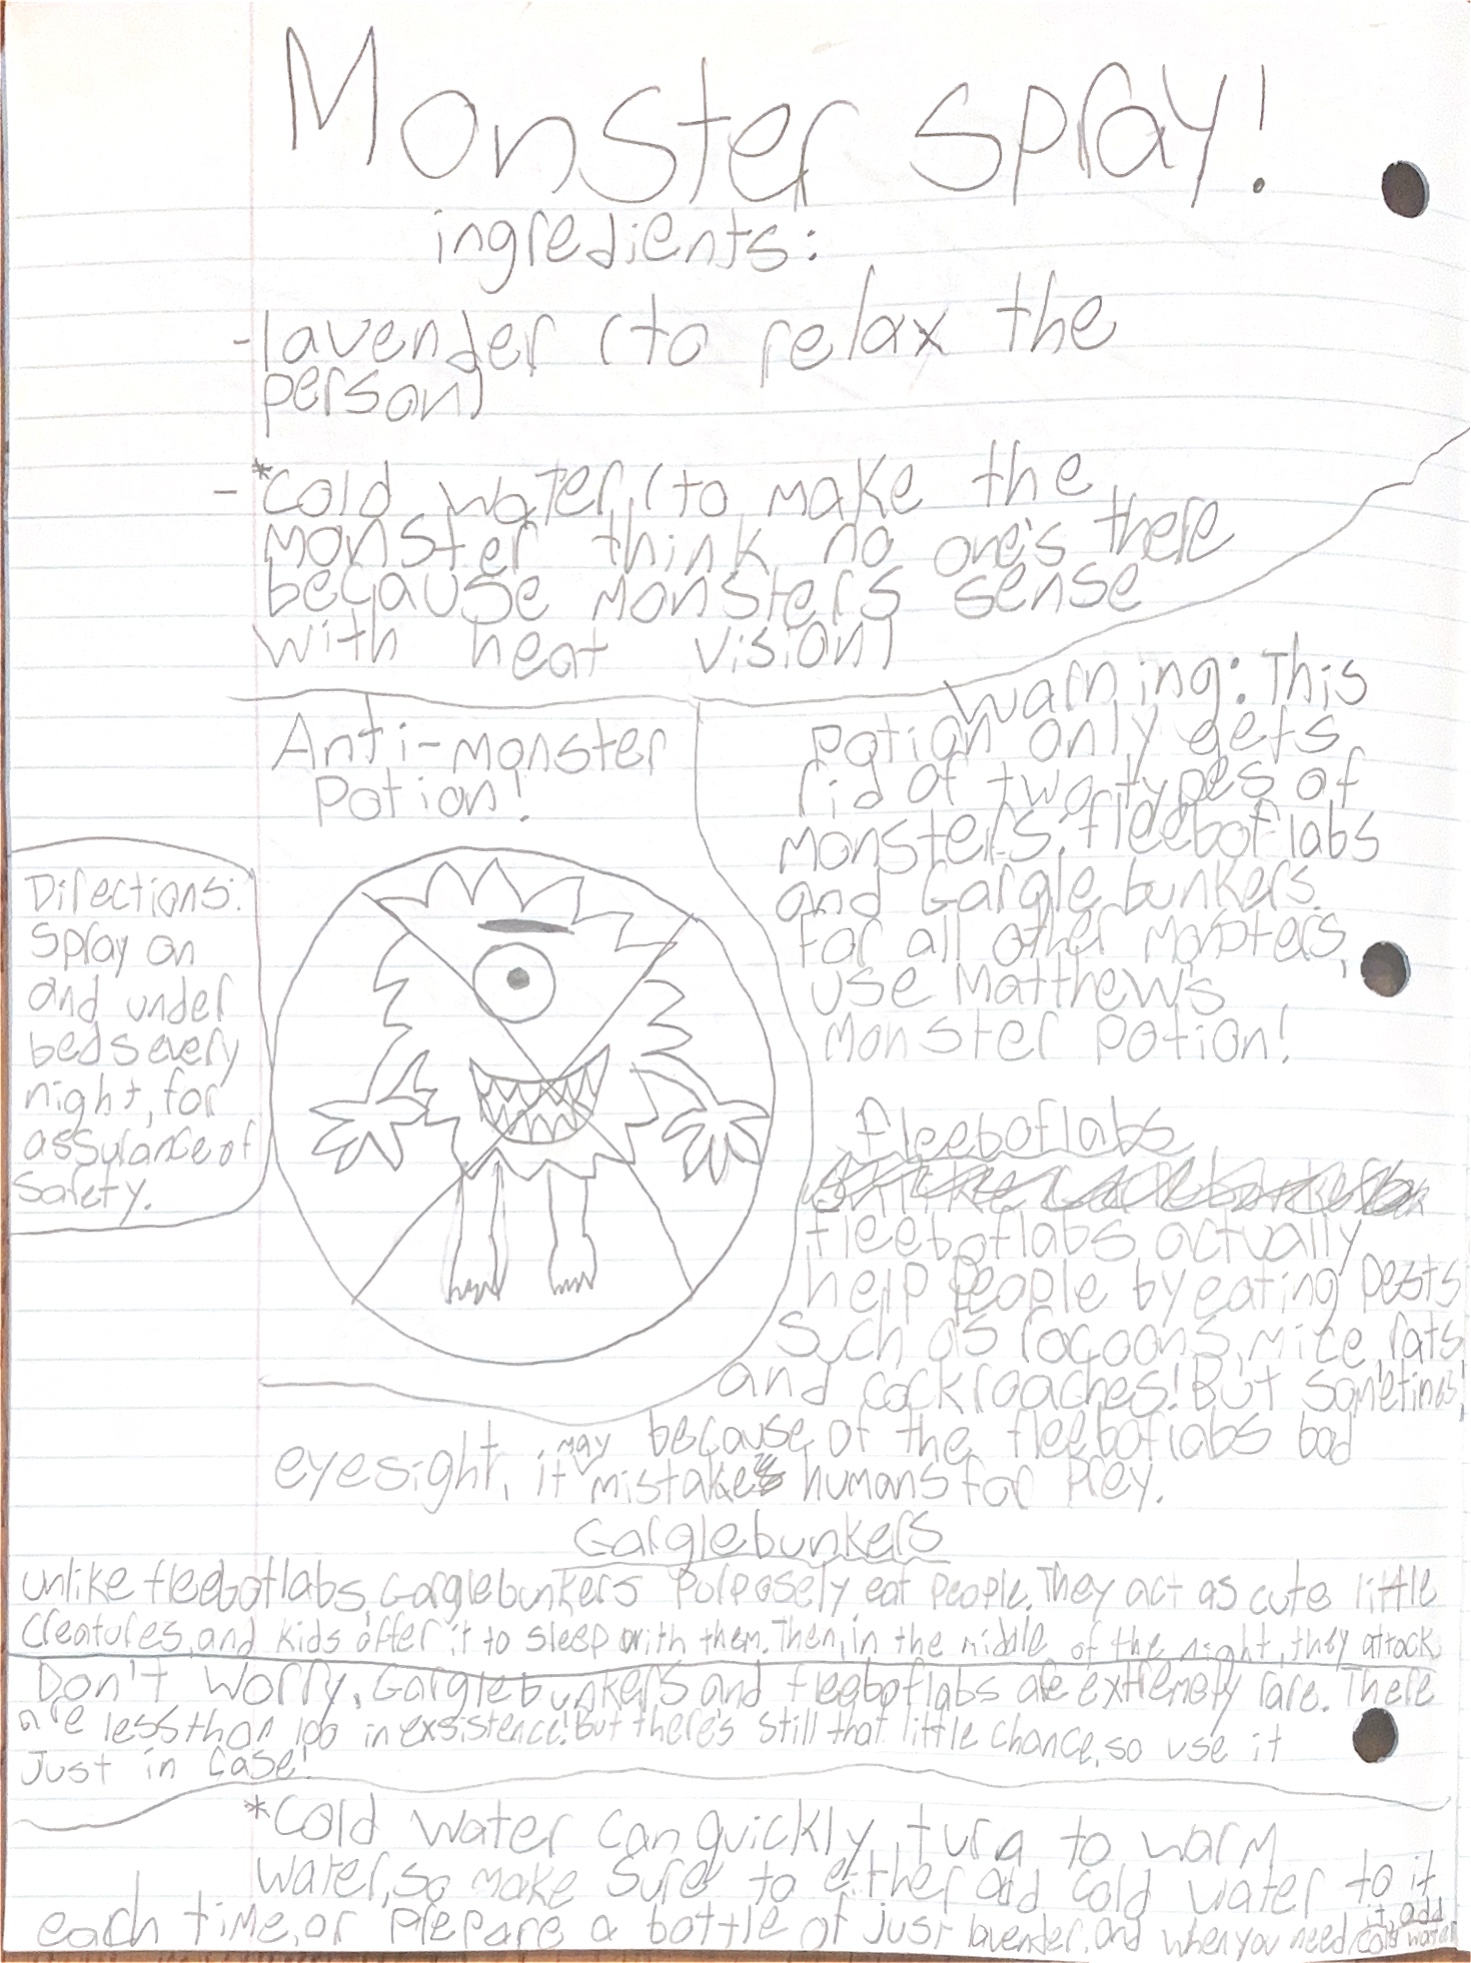 Monster spray!
ingredients:
-lavender (to relax the
person)
- *cold water (to make the
monster think no one's there
because monsters sense
with heat vision)
Anti-monster
Potion!
Directions:
Spray on
and under
beds every
night, for
assurance of
safety.
Warning: This
Potion only gets
rid of two types of
monsters: fleeboflabs
and Gargle bunkers.
for all other monsters,
use Matthew's
monster potion!
fleeboflabs
fleeboflabs actually
help people by eating pests
such as racoons, mice, rats
and cockroaches! But sometimes,
because of the fleeboflabs bad
eyesight, it may mistake humans for prey.
Garglebunkers
unlike fleeboflabs, Garglebunkers purposely eat people. They act as cute little
creatures, and kids offer it to sleep with them. Then, in the middle of the night, they attack
Don't worry, Garglebunkers and fleeboflabs are extremely rare. There
are less than 100 in exsistence! But there's still that little chance, so use it
Just in case!
*Cold water can quickly turn to warm
water, so make sure to either add cold water to it
each time, or prepare a bottle of just lavender, and when you need it, add cold water